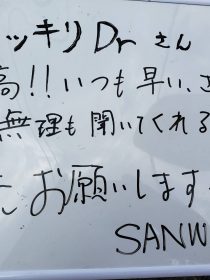 ッキリDrさん
高!!いつも早い、
無理も聞いてくれる
お願いします
SANW